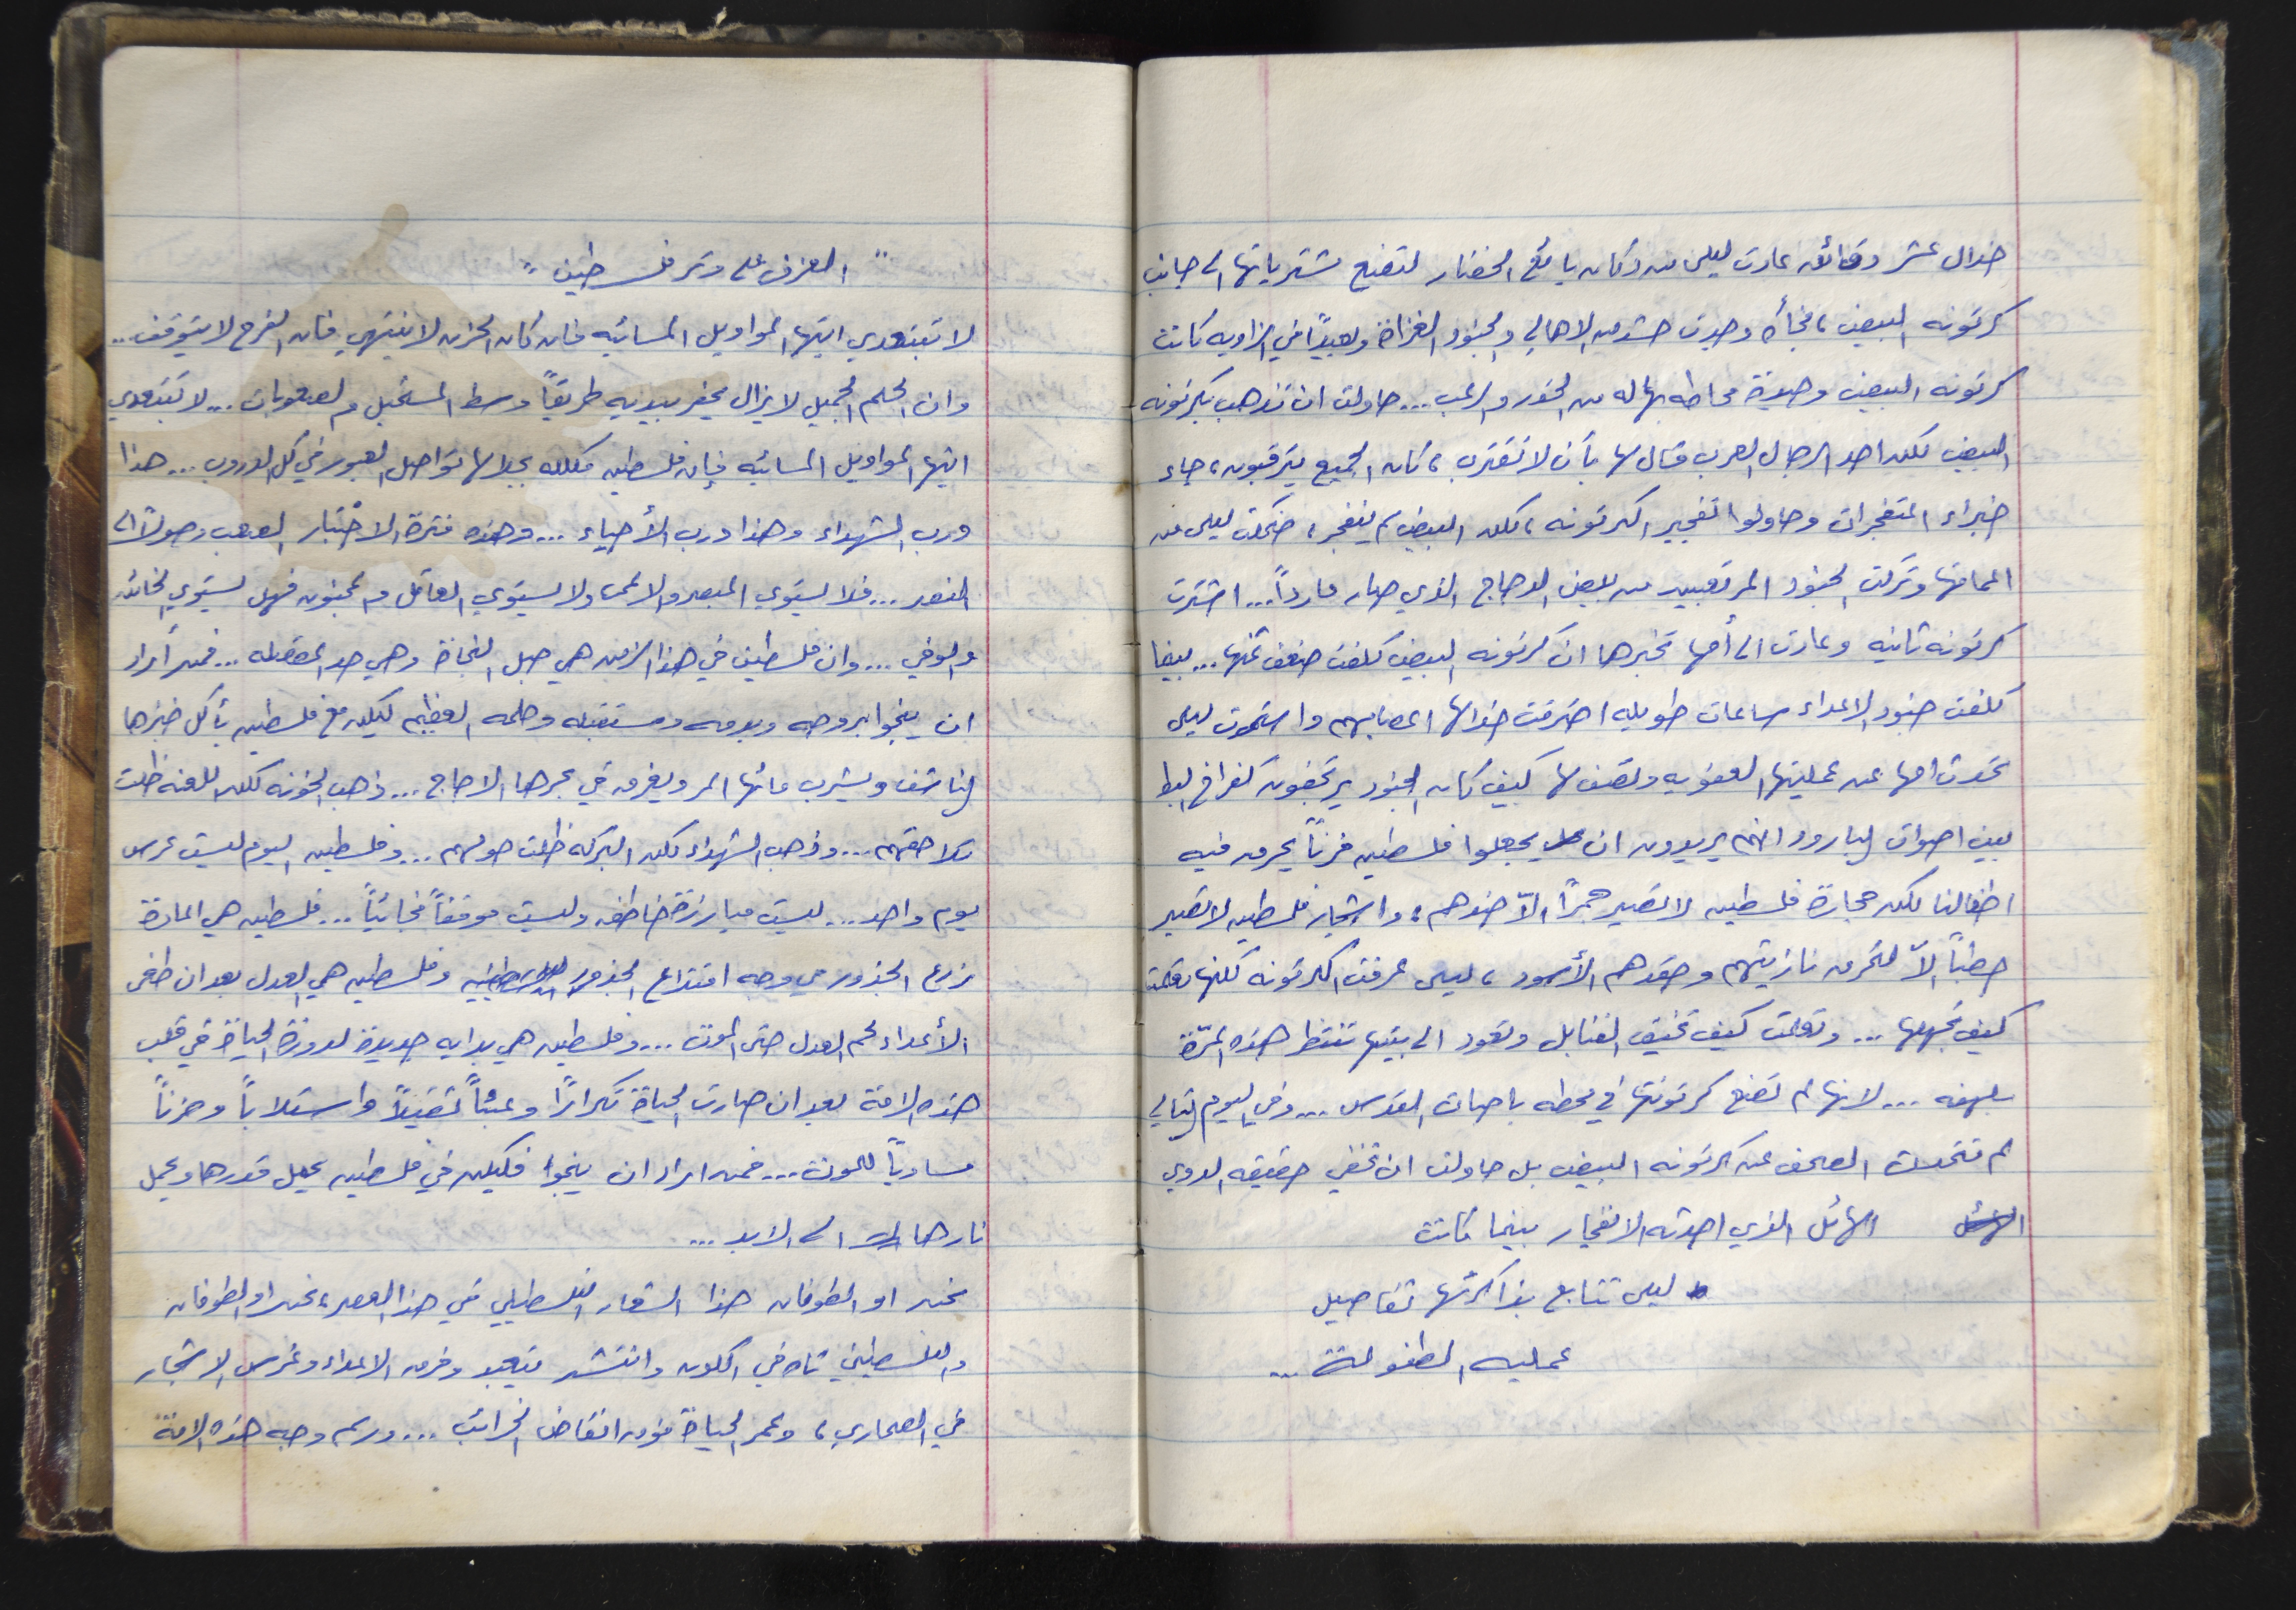 خلال عشر دقائق عادت ليلى من دكان بائع الخضار لتضع مشترياتها الى جانب
كرتونه البيض، فجأة وجدت حشد من الاهالي والجنود الغزاة وبعيدًا في الزاويه كانت
كرتونه البيض وحيدة محاطه بهاله من الحذر والرعب... حاولت ان تذهب لكرتونه
البيض لكن احد الرجال العرب قال لها بأن لا تقترب، كان الجميع يترقبون، جاء
خبراء المتفجرات وحاولوا تفجير الكرتونه، لكن البيض لم ينفجر، ضحكت ليلى من
اعماقها وتركت الجنود المرتعبين من بيض الدجاج الذي صار مارداً... اشترت
كرتونه ثانيه وعادت الى أمها تخبرها ان كرتونه البيض كلفت ضعف ثمنها... بينما
كلفت جنود الاعداء ساعات طويله احترقت خلالها اعصابهم واستمرت ليلى
تحدث امها عن عمليتها العفويه وتصف لها كيف كان الجنود يرتجفون كفراخ البط
بين اصوات البارود انهم يريدون ان يجعلوا فلسطين فرناً يحرق فيه
اطفالنا لكن حجارة فلسطين لا تصير جمرًا الاّ ضدهم، واشجار فلسطين لا تصير
حطباً الاّ لتحرق نازيتهم وحقدهم الأسود، ليلى عرفت الكرتونه لكنها تعلمت
كيف تجهلها... وتعلمت كيف تخيف القنابل وتعود الى بيتها تنتظر هذه المرّة
بلهفه... لانها لم تضع كرتونتها في محطه باصات القدس... وفي اليوم التالي
لم تتحدث الصحف عن كرتونه البيض بل حاولت ان تخفي حقيقه الدوي
الهائل الهائل الذي احدثه الانفجار بينما كانت
ليلى تتابع بذاكرتها تفاصيل
عمليه الطفولة...
" العزف على وتر فلسطين "
لا تبتعدي ايتها المواويل المسائيه فان كان الحزن لا ينتهي فان الفرح لا يتوقف..
وان الحلم الجميل لا يزال يحفر بيديه طريقاً وسط المستحيل والصعوبات... لا تبتعدي
ايتها المواويل المسائيه فإن فلسطين مكلله بجلالها تواصل العبور في كل الدروب... هذا
درب الشهداء وهذا درب الأحياء... وهذه فترة الاختبار الصعب وصولاً الى
النصر... فلا يستوي المبصر والاعمى ولا يستوي العاقل والمجنون فهل يستوي الخائن
والوفي... وان فلسطين في هذا الزمن هي حبل النجاة وهي حد المقصله... فمن أراد
ان ينجوا بروحه وبدمه ومستقبله وحلمه العظيم ليكن مع فلسطين يأكل خبزها
الناشف ويشرب مائها المر ويغرق في بحرها الاجاج... ذهب الخونه لكن اللعنه ظلت
تلاحقهم... وذهب الشهداء لكن البركه ظلت حولهم... وفلسطين اليوم ليست عرس
يوم واحد... ليست مبارزة خاطفه وليست موقفاً فجائياً... فلسطين هي المادة
زرع الجذور في وجه اقتلاع الجذور وفلسطين هي العدل بعد ان طغى
الأعداء لحم العدل حتى الموت... وفلسطين هي بدايه جديدة لدورة الحياة في قلب
هذه الامة بعد ان صارت الحياة تكرارًا وعبئاً ثقيلاً واستلاباً وحزناً
مساوياً للموت... فمن اراد ان ينجوا فليكن في فلسطين يحمل قدرها ويحمل
نارها الى الابد...
نحن او الطوفان هذا الشعار الفلسطيني في هذا العصر، نحن او الطوفان
والفلسطيني تاه في الكون وانتشر وغرس الاشجار
في الصحاري، وعمر الحياة فوق انقاض الخرائب... ورسم وجه هذه الامة